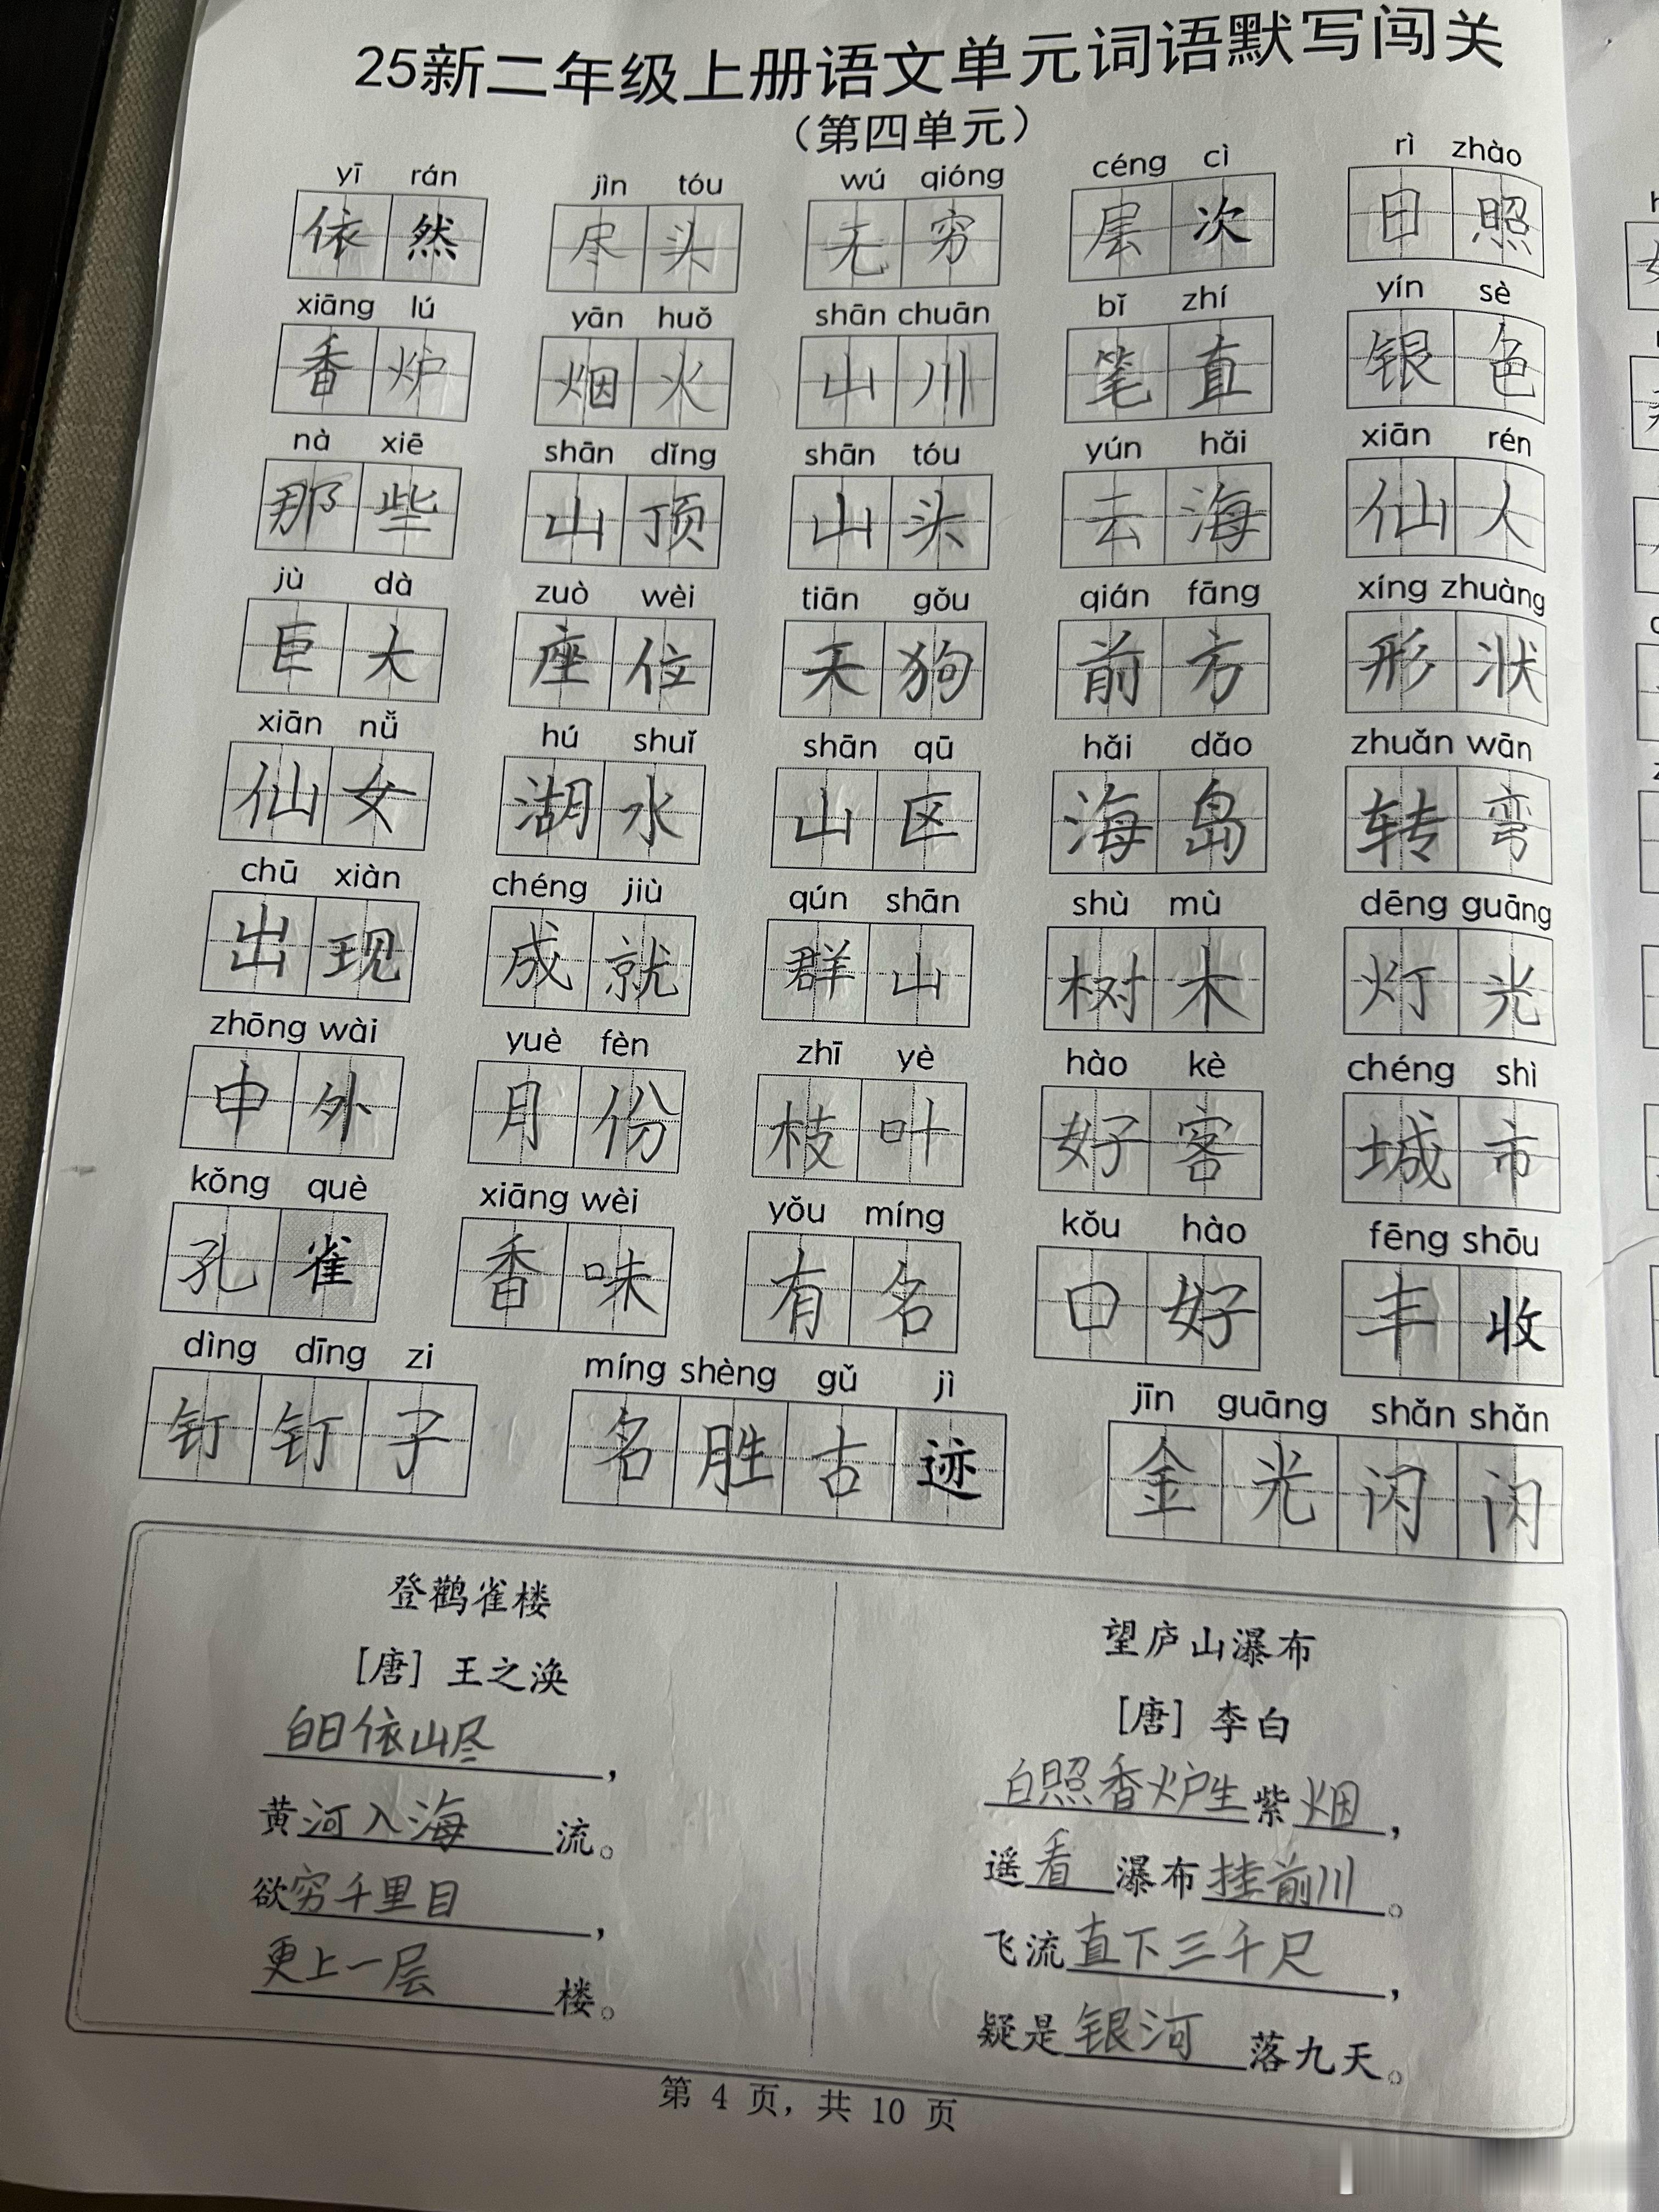 25新二年级上册语文单元词语默写闯关
（第四单元）
yī rán jìn tóu wú qióng céng cì rì zhào
依然 尽头 无穷 层次 日照
xiāng lú yān huǒ shān chuān bǐ zhí yín sè
香炉 烟火 山川 笔直 银色
nà xiē shān dǐng shān tóu yún hǎi xiān rén
那些 山顶 山头 云海 仙人
jù dà zuò wèi tiān gǒu qián fāng xíng zhuàng
巨大 座位 天狗 前方 形状
xiān nǚ hú shuǐ shān qū hǎi dǎo zhuǎn wān
仙女 湖水 山区 海岛 转弯
chū xiàn chéng jiù qún shān shù mù dēng guāng
出现 成就 群山 树木 灯光
zhōng wài yuè fèn zhī yè hào kè chéng shì
中外 月份 枝叶 好客 城市
kǒng què xiāng wèi yǒu míng kǒu hào fēng shōu
孔雀 香味 有名 口好 丰收
dìng dīng zi míng shèng gǔ jì jīn guāng shǎn shǎn
钉钉子 名胜古迹 金光闪闪
登鹳雀楼
［唐］王之涣
白日依山尽，
黄河入海流。
欲穷千里目，
更上一层楼。
望庐山瀑布
［唐］李白
白照香炉生紫烟，
遥看瀑布挂前川。
飞流直下三千尺，
疑是银河落九天。
第 4 页，共 10 页